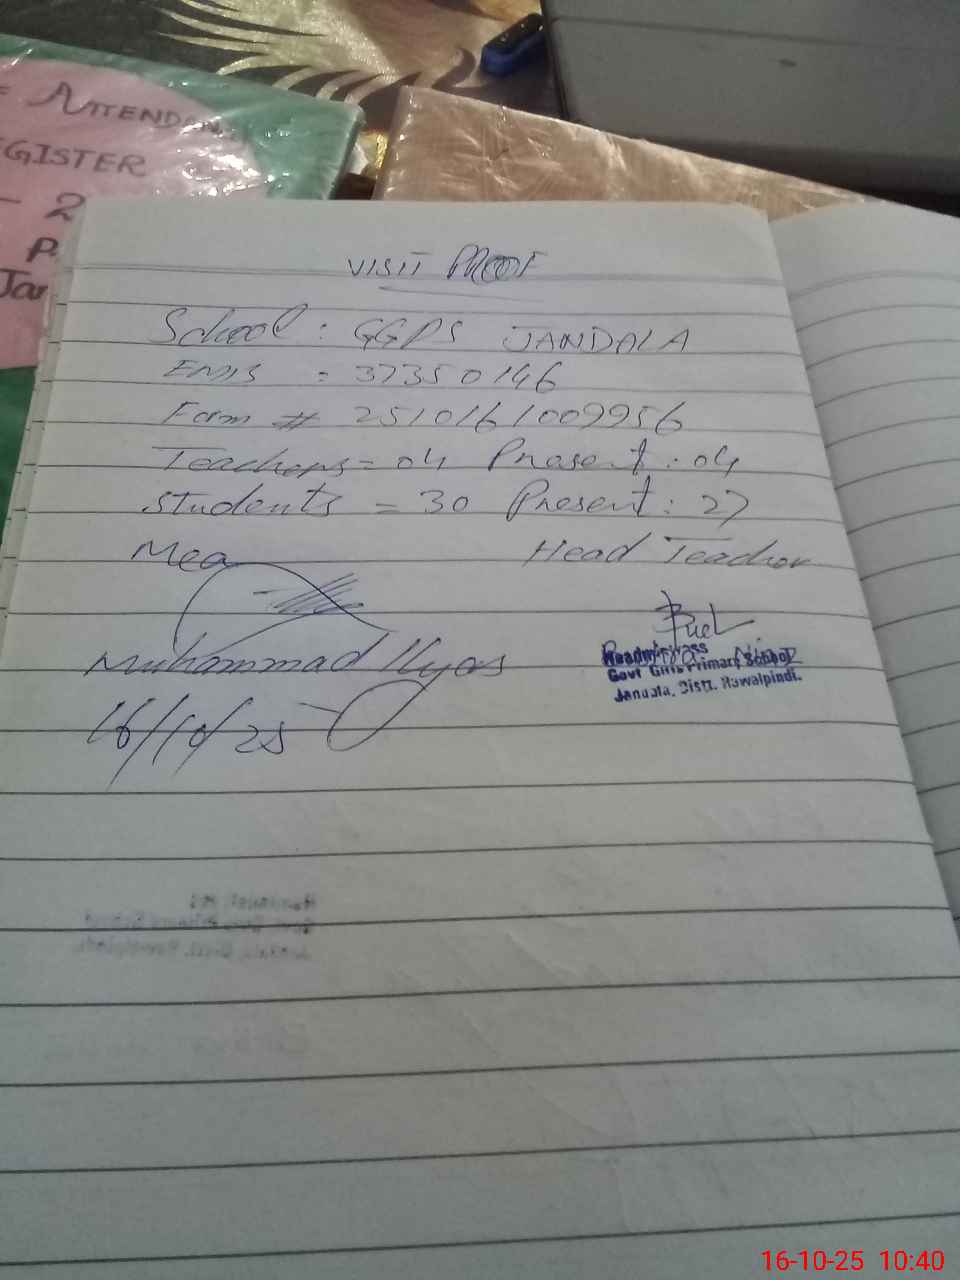 = ATTENDANCE
REGISTER
- 2
P.
Jan
VISIT PROOF
School : GGPS JANDALA
EMIS = 37350146
Form # 2510161009956
Teachers = 04 Present : 04
Students = 30 Present : 27
Mea
Head Teacher
Muhammad Ilyas
16/10/25
Headmistress
Govt Girls Primary School
Jandala, Distt. Rawalpindi.
16-10-25 10:40